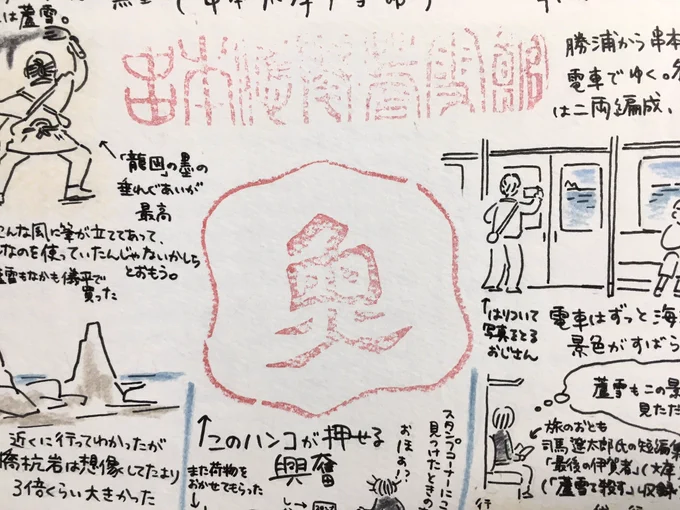 は蘆雪。
勝浦から串本
電車でゆく。
は二両編成、
串本応挙芦雪館
「龍図」の墨の
垂れぐあいが
最高
こんな風に筆が立ててあって、
なのを使っていたんじゃないかしら
とおもう。
蘆雪もなかも儀平で
買った
魚
はりついて
写真をとる
おじさん
電車はずっと海
景色がすばら
蘆雪もこの景
見ただ
旅のおとも
司馬遼太郎氏の短編集
「最後の伊賀者」
(「蘆雪を殺す」収録
近くに行ってわかったが
橋杭岩は想像してたより
3倍くらい大きかった
このハンコが押せる
興奮
また荷物を
おかせてもらった
おほぉ!?
スタンプコーナーにこ
見つけたときの